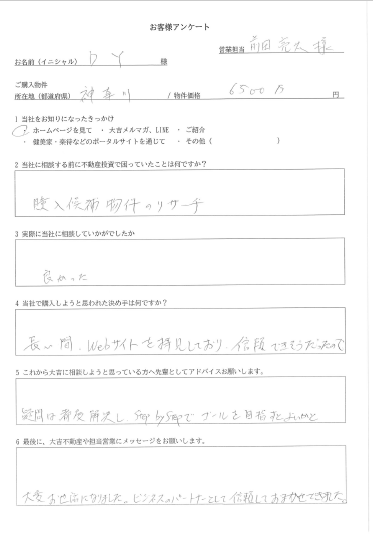 お客様アンケート
営業担当 前田亮太様
お名前（イニシャル） D Y 様
ご購入物件
所在地（都道府県） 神奈川 / 物件価格 6500万 円
1 当社をお知りになったきっかけ
・ ホームページを見て ・ 大吉メルマガ、LINE ・ ご紹介
・ 健美家・楽待などのポータルサイトを通じて ・ その他（ ）
2 当社に相談する前に不動産投資で困っていたことは何ですか？
購入候補物件のリサーチ
3 実際に当社に相談していかがでしたか
良かった
4 当社で購入しようと思われた決め手は何ですか？
長い間、Webサイトを拝見しており、信頼できそうだったので
5 これから大吉に相談しようと思っている方へ先輩としてアドバイスお願いします。
疑問は都度解決し、Step by Stepでゴールを目指すとよいかと
6 最後に、大吉不動産や担当営業にメッセージをお願いします。
大変お世話になりました。ビジネスのパートナーとして信頼しておまかせできました。